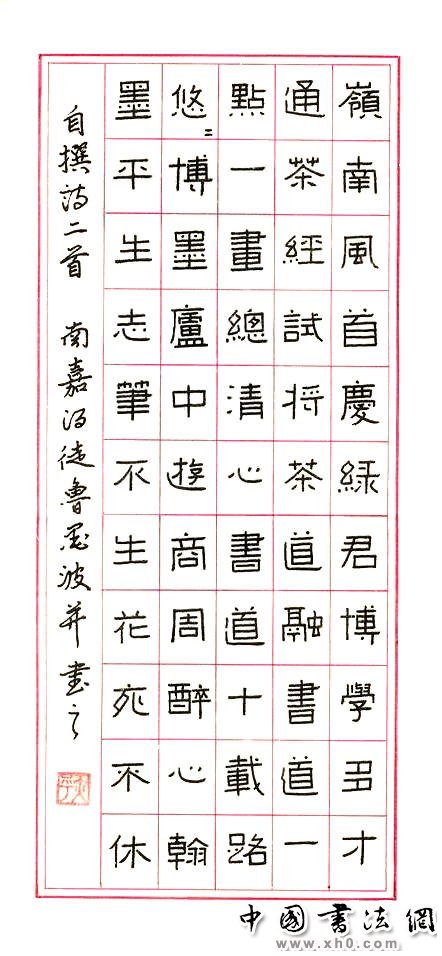 嶺南風首慶綠君博學多才
通茶經試将茶道融書道一
點一畫總清心書道十載路
悠〻博墨廬中遊商周醉心翰
墨平生志筆不生花死不休
自撰詩二首 南嘉徒魯墨波并書之
中國書法網
www.xh0.com